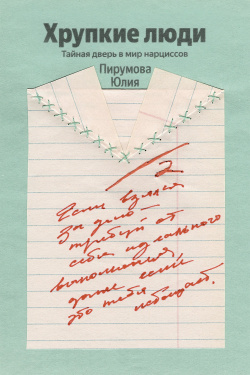 Хрупкие люди
Тайная дверь в мир нарциссов
Пирумова
Юлия
2
Если взялся
за дело –
требуй от
себя идеального
выполнения,
даже если
это тебя